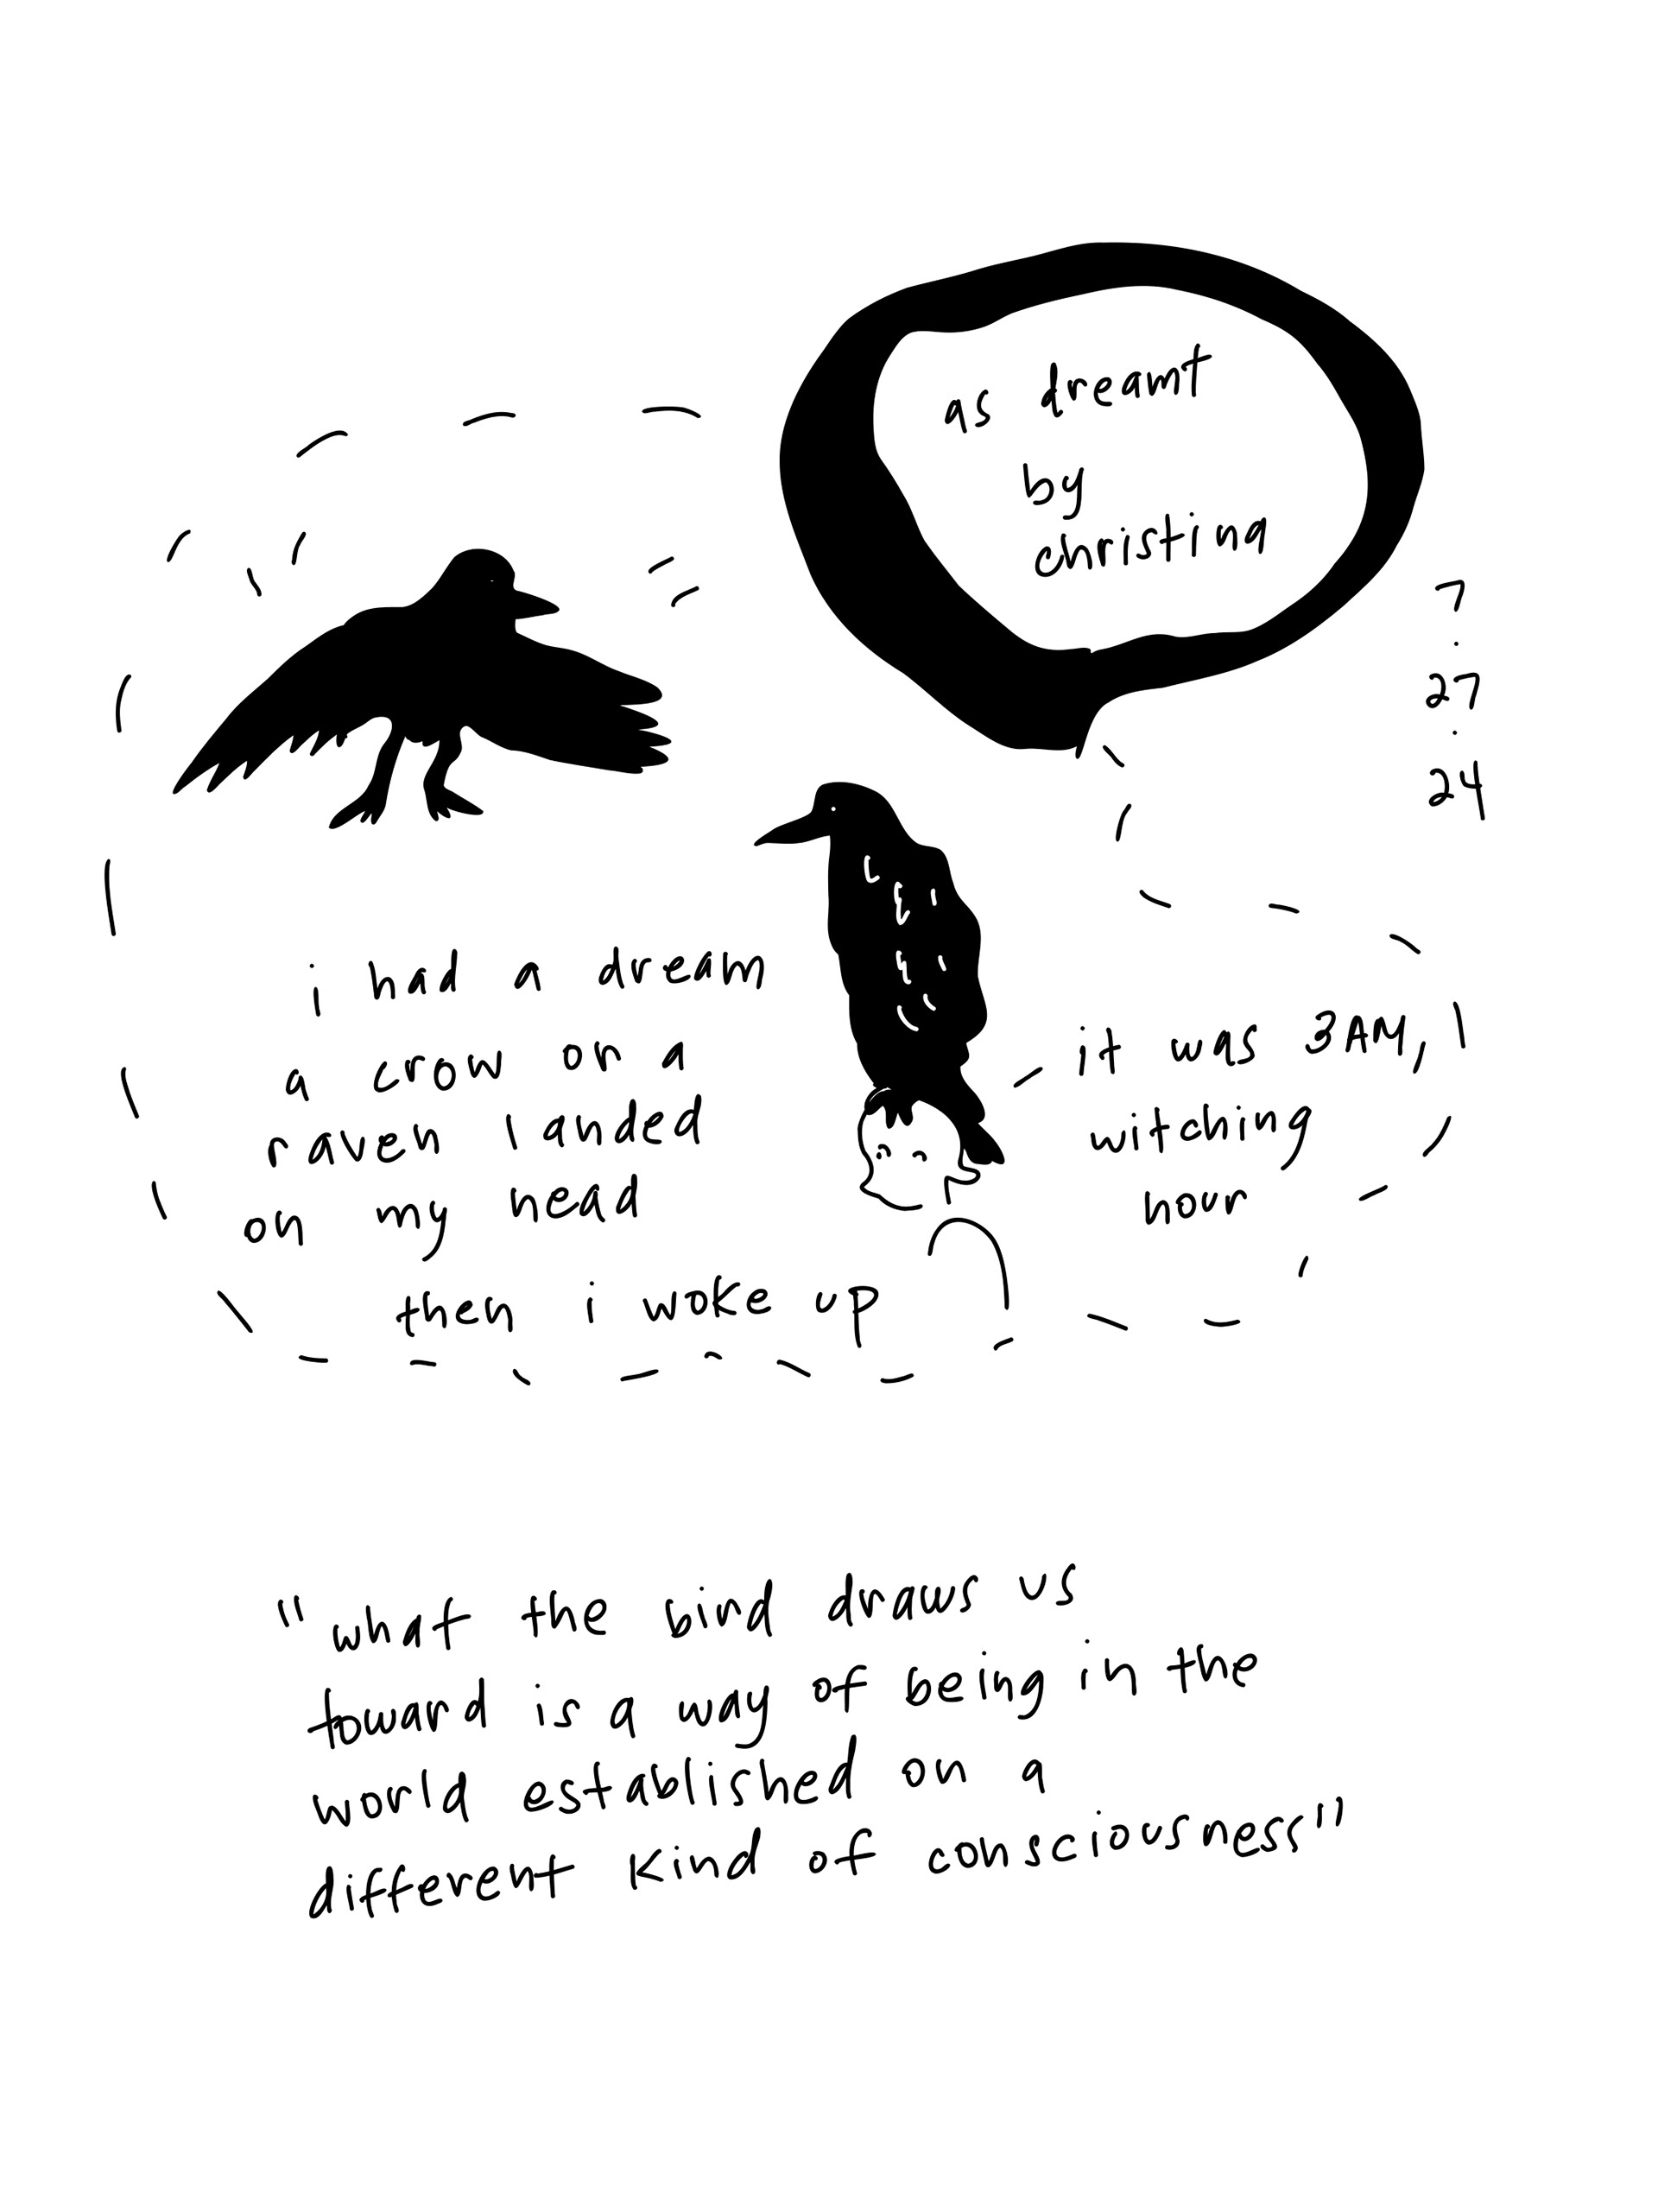 as dreamt
by
christina
7
.
27
.
24
i had a dream
a crow or a
raven landed
on my head
then i woke up
it was 3AM,
witching
hour
"what the bird draws us
toward is a way of being in the
world established on a
different kind of consciousness"